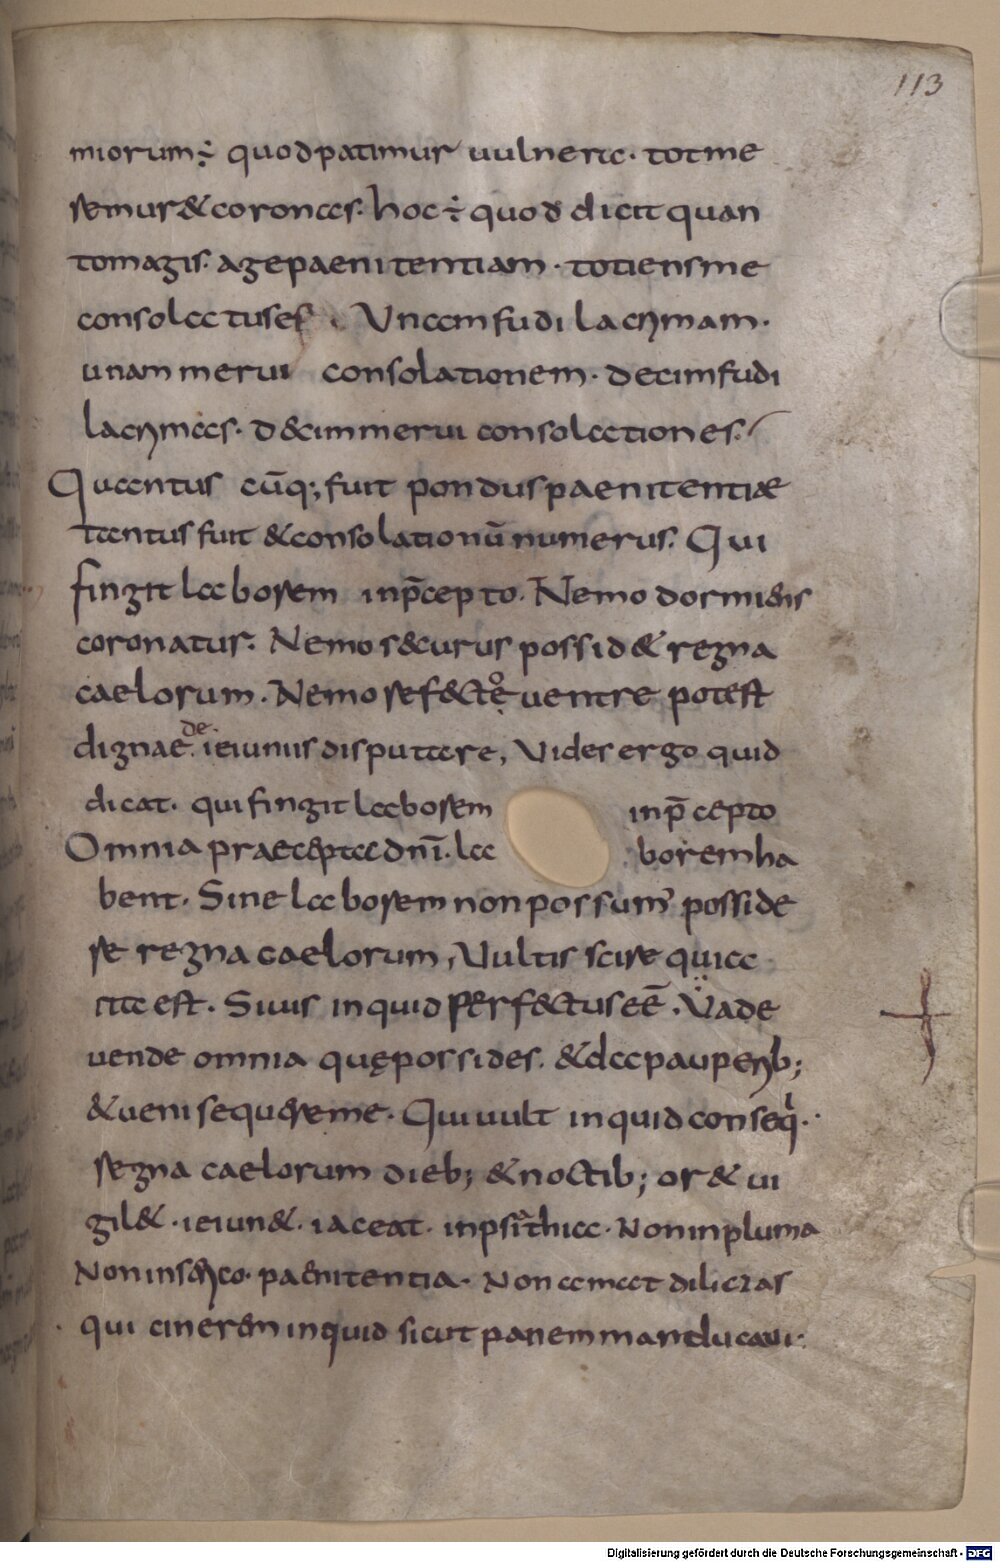 113
miorum ÷ quod patimur uulnera. tot me
remur & coronas. hoc ÷ quod dicit quan
to magis ago paenitentiam. totiens me
consolatus es. Unam fudi lacrymam.
unam merui consolationem. decim fudi
lacrymas. decim merui consolationes.
Quantus cūq; fuit pondus paenitentiae
tantus fuit & consolationū numerus. Qui
fingit laborem in p̄cepto. Nemo dormiens
coronatus. Nemo securus possid& regna
caelorum. Nemo refecto uentre potest
digne de ieiuniis disputare, Vides ergo quid
dicat. qui fingit laborem in p̄cepto
Omnia praecepta dn̄i. la borem ha
bent. Sine laborem non possum' posside
re regna caelorum, Vultis scire quia
ita est. Si uis inquid perfectus eē. Vade
uende omnia quę possides. & da pauperib;
& ueni sequere me. Qui uult inquid conseqi.
regna caelorum dieb; & noctib; or& ui
gil&. ieiun&. iaceat. in psiathia. Non in pluma
Non in serico. paenitentia. Non amat dilicias
qui cinerem inquid sicut panem manducaui.
Digitalisierung gefördert durch die Deutsche Forschungsgemeinschaft - DFG